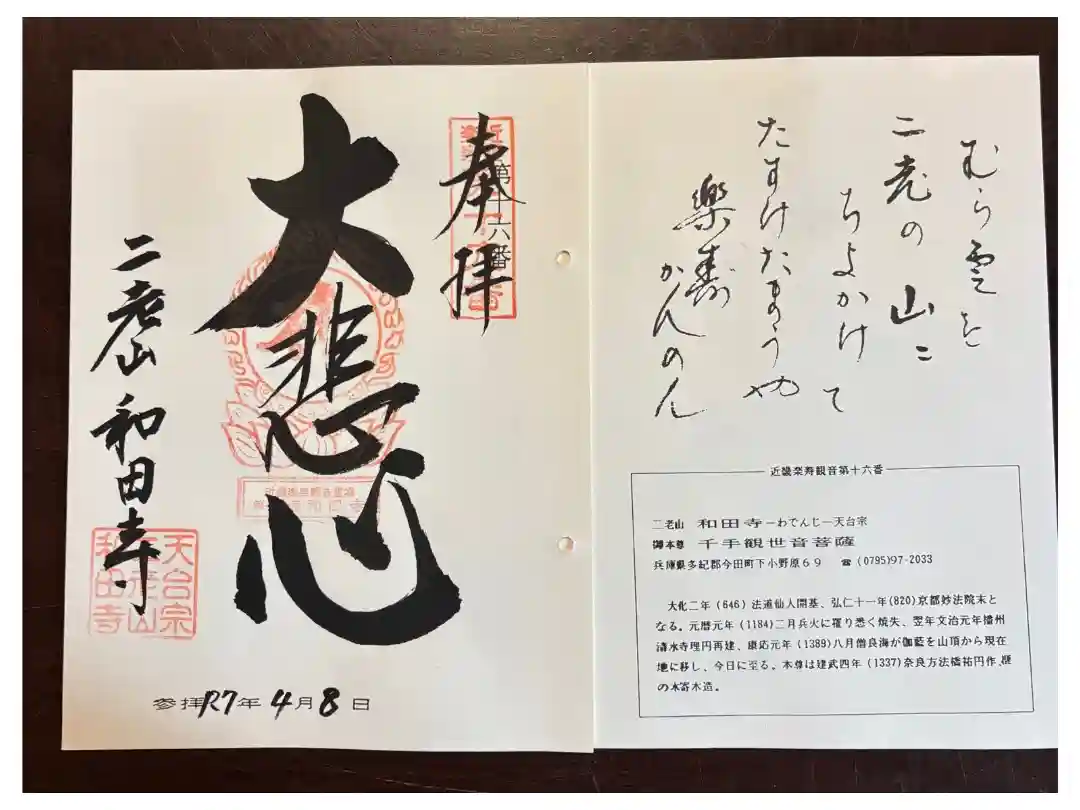 奉拝
第十六番
大悲心
二老山 和田寺
天台宗
二老山
和田寺
参拝R7年4月8日
むら雲を
二老の山に
ちよかけて
たすけたまうや
樂壽
かんのん
近畿楽寿観音第十六番
二老山 和田寺―わでんじ―天台宗
御本尊 千手観世音菩薩
兵庫県多紀郡今田町下小野原69 ☎(0795)97-2033
大化二年(646)法道仙人開基、弘仁十一年(820)京都妙法院末と
なる。元暦元年(1184)二月兵火に罹り悉く焼失、翌年文治元年播州
清水寺理円再建、康応元年(1389)八月僧良海が伽藍を山頂から現在
地に移し、今日に至る。本尊は建武四年(1337)奈良方法橋祐円作、
の木寄木造。